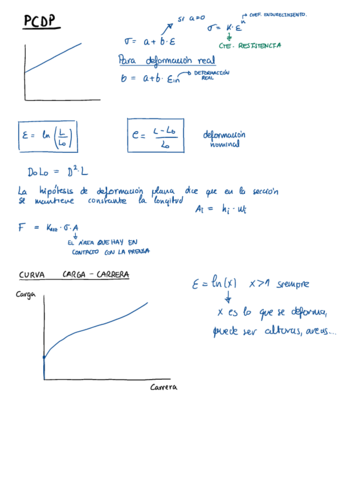 PCDP
si a=0
σ = a + b·ε
σ = K·ε^n
COEF. ENDURECIMIENTO.
CTE. RESISTENCIA
Para deformación real
b = a + b·εin
DEFORMACIÓN REAL
ε = ln(L/Lo)
e = L-Lo/Lo
deformación nominal
Do Lo = D²·L
La hipótesis de deformación plana dice que en la sección
se mantiene constante la longitud
Ai = hi · wi
F = · σ · A
EL ÁREA QUE HAY EN
CONTACTO CON LA PRENSA
CURVA CARGA - CARRERA
Carga
Carrera
ε = ln(x) x>1 siempre
x es lo que se deforma,
puede ser alturas, areas...